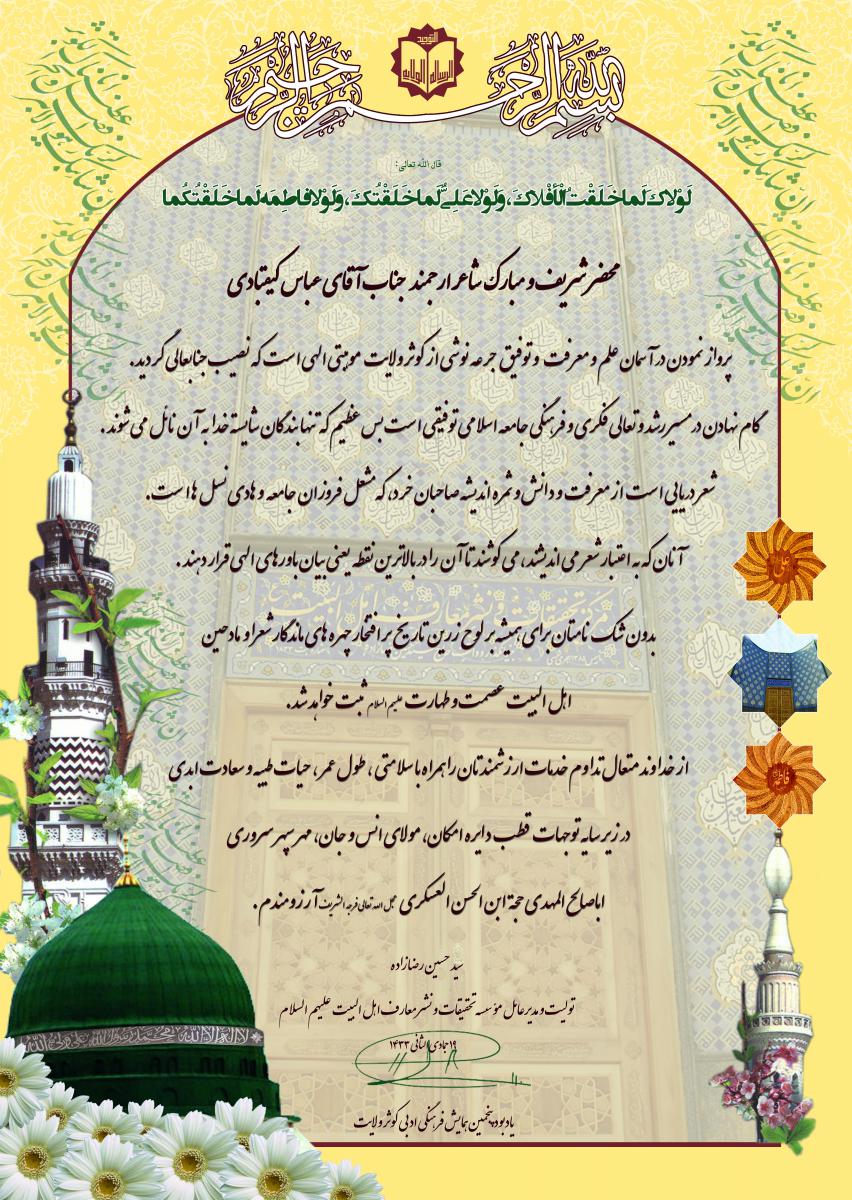 بسم الله الرحمن الرحیم
التوحید
الرسالة الولایة
قال الله تعالی:
لَوْلاكَ لَما خَلَقْتُ الْأَفْلاكَ، وَلَوْلا عَلِیٌّ لَما خَلَقْتُكَ، وَلَوْلا فاطِمَه لَما خَلَقْتُكُما
محضر شریف و مبارك شاعر ارجمند جناب آقای عباس کیقبادی
پرواز نمودن در آسمان علم و معرفت و توفیق جرعه نوشی از کوثر ولایت موهبتی الهی است که نصیب جنابعالی گردید.
گام نهادن در مسیر رشد و تعالی فکری و فرهنگی جامعه اسلامی توفیقی است بس عظیم که تنها بندگان شایسته خدا به آن نائل می شوند.
شعر دریایی است از معرفت و دانش و ثمره اندیشه صاحبان خرد، که مشعل فروزان جامعه و هادی نسل ها است.
آنان که به اعتبار شعر می اندیشند، می کوشند تا آن را در بالاترین نقطه یعنی بیان باورهای الهی قرار دهند.
بدون شک نامتان برای همیشه بر لوح زرین تاریخ پر افتخار چهره های ماندگار شعرا و مادحین
اهل البیت عصمت و طهارت علیهم السلام ثبت خواهد شد.
از خداوند متعال تداوم خدمات ارزشمندتان را همراه با سلامتی، طول عمر، حیات طیبه و سعادت ابدی
در زیر سایه توجهات قطب دایره امکان، مولای انس و جان، مهر سپهر سروری
اباصالح المهدی حجة ابن الحسن العسکری عجل الله تعالی فرجه الشریف آرزومندم.
سید حسین رضازاده
تولیت و مدیر عامل مؤسسه تحقیقات و نشر معارف اهل البیت علیهم السلام
۱۹ جمادی الثانی ۱۴۳۳
یادبود پنجمین همایش فرهنگی ادبی کوثر ولایت
علی
فاطمة